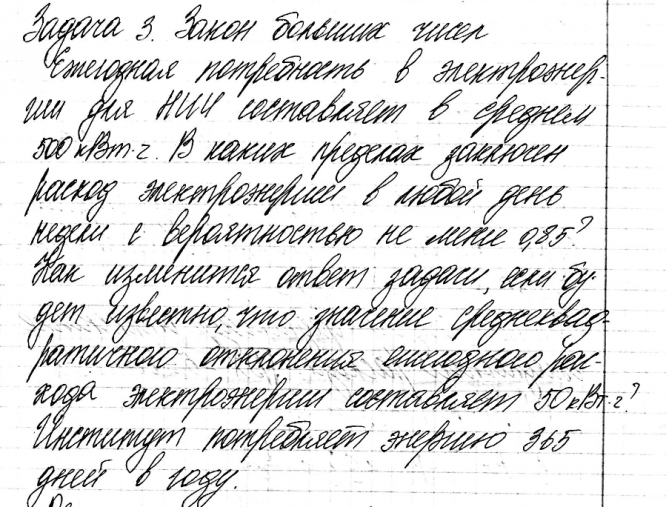 Задача 3. Закон больших чисел
Ежегодная потребность в электроэнер-
гии для НИИ составляет в среднем
500 кВт·ч. В каких пределах заключен
расход электроэнергии в любой день
недели с вероятностью не менее 0,85?
Как изменится ответ задачи, если бу-
дет известно, что значение среднеквад-
ратичного отклонения ежегодного рас-
хода электроэнергии составляет 50 кВт·г?
Институт потребляет энергию 365
дней в году.